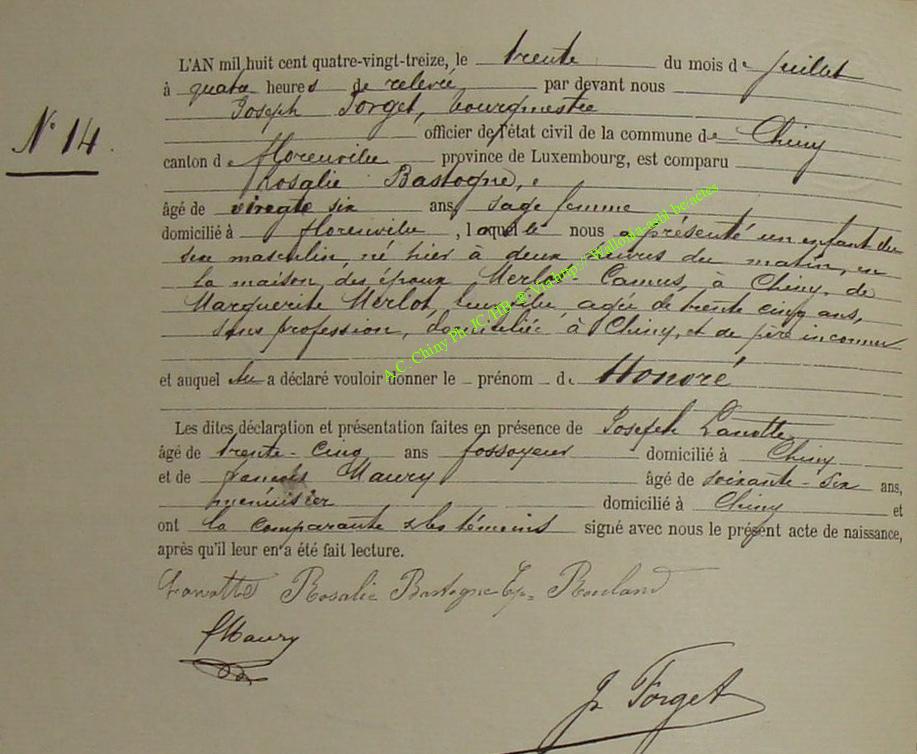 L'AN mil huit cent quatre-vingt-treize, le trente du mois de juillet
à quatre heures de relevée par devant nous
Joseph Forget, bourgmestre
officier de l'état civil de la commune de Chiny
N° 14
canton de florenville province de Luxembourg, est comparu
Rosalie Bastogne,
âgé de vingt six ans, sage femme
domicilié à florenville, laquelle nous a présenté un enfant du
sexe masculin, né hier à deux heures du matin, en
la maison des époux Merlot-Camus, à Chiny, de
Marguerite Merlot, agée de trente cinq ans,
sans profession, domiciliée à Chiny, et de père inconnu
et auquel elle a déclaré vouloir donner le prénom de Honoré
Les dites déclaration et présentation faites en présence de Joseph Lanotte
âgé de trente-cinq ans fossoyeur domicilié à Chiny
et de françois Maury âgé de soixante-six ans,
menuisier domicilié à Chiny et
ont la comparante & les témoins signé avec nous le présent acte de naissance,
après qu'il leur en a été fait lecture.
Lanotte Rosalie Bastogne Ep= Rouland
fMaury
J. Forget
A.C. Chiny Ph JC.HB @ Via http://Wallonia-asbl.be/actes